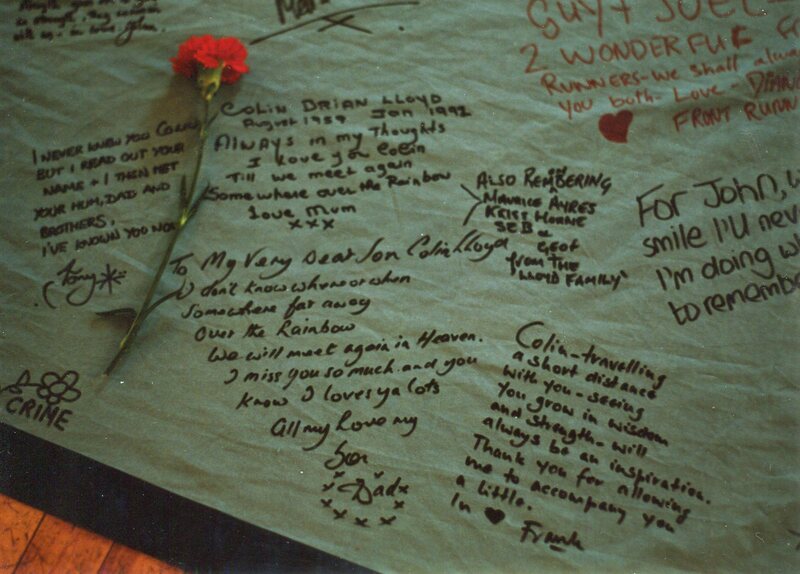 in strength, they
with us, in love
GUY + JOEL
2 WONDERFUL
RUNNERS - WE SHALL
YOU BOTH - LOVE - DIANE
FRONT RUNN
COLIN BRIAN LLOYD
AUGUST 1959 JAN 1992
ALWAYS in my Thoughts
I Love you Colin
Till we meet again
Somewhere over the Rainbow
Love Mum
XXX
I NEVER KNEW YOU COLIN
BUT I READ OUT YOUR
NAME + I THEN MET
YOUR MUM, DAD AND
BROTHERS.
I'VE KNOWN YOU NOW
Tony
ALSO REMBERING
MAURICE AYRES
KRISS HORNE
SEB &
GEOF
from THE
'LLOYD FAMILY'
For John,
smile I'll
I'm doing
to remembe
To My Very Dear Son Colin Lloyd
I don't know where or when
Somewhere far away
Over the Rainbow
We will meet again in Heaven.
I miss you so much and you
know I loves ya lots
All my Love my
Son
Dad
CRIME
Colin - travelling
a short distance
with you - seeing
you grow in wisdom
and strength - will
always be an inspiration.
Thank you for allowing
me to accompany you
a little.
In ♥
Frank